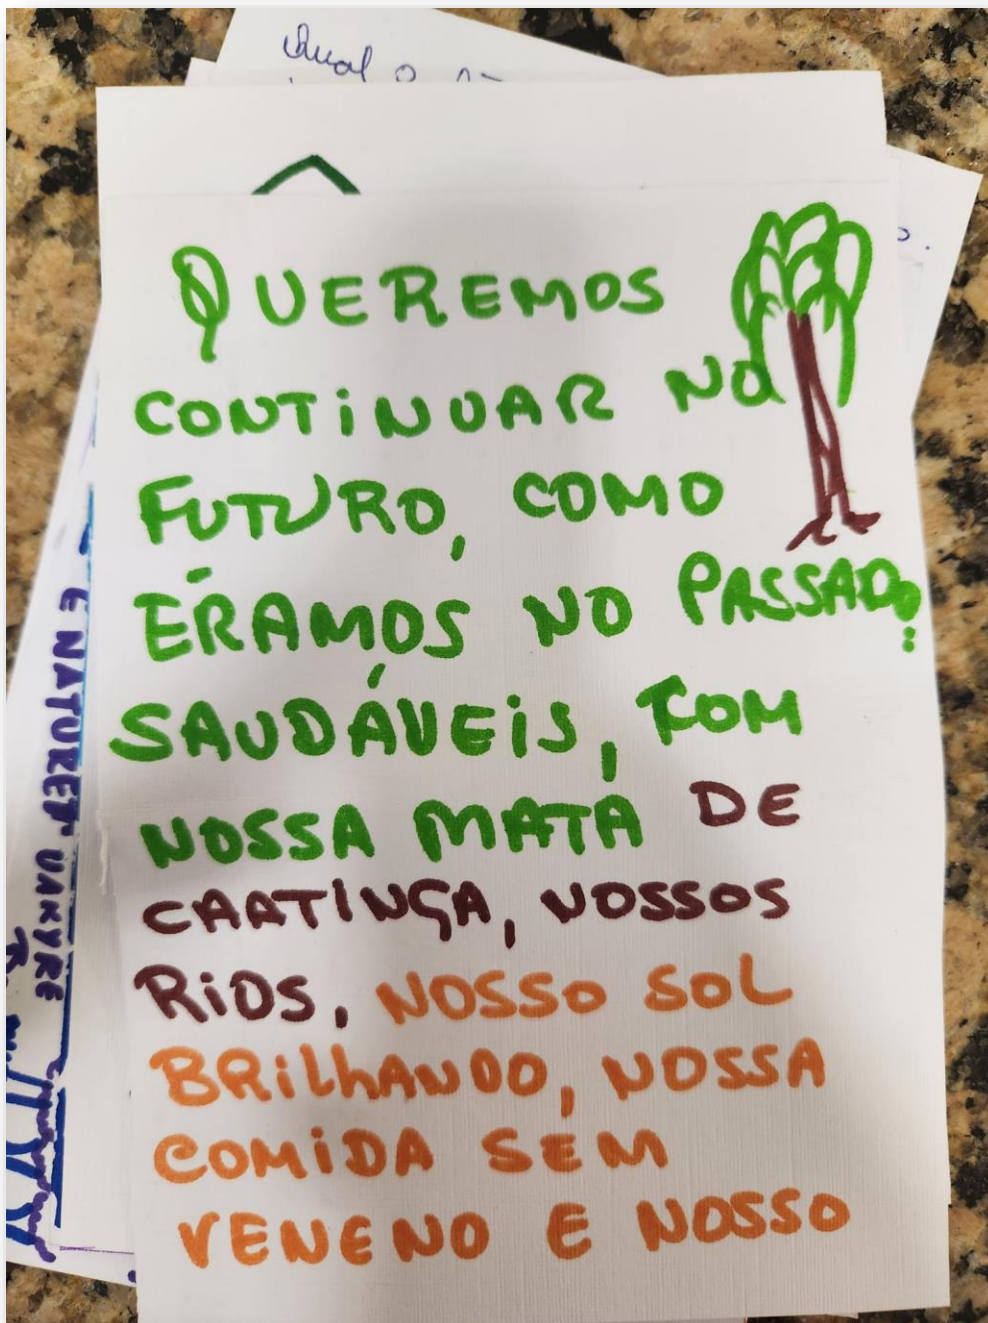 Qual
QUEREMOS
CONTINUAR NO
FUTURO, COMO
ÉRAMOS NO PASSADO:
SAUDÁVEIS, COM
NOSSA MATA DE
CAATINGA, NOSSOS
RIOS, NOSSO SOL
BRILhANDO, NOSSA
COMIDA SEM
VENENO E NOSSO
E NATUREZ